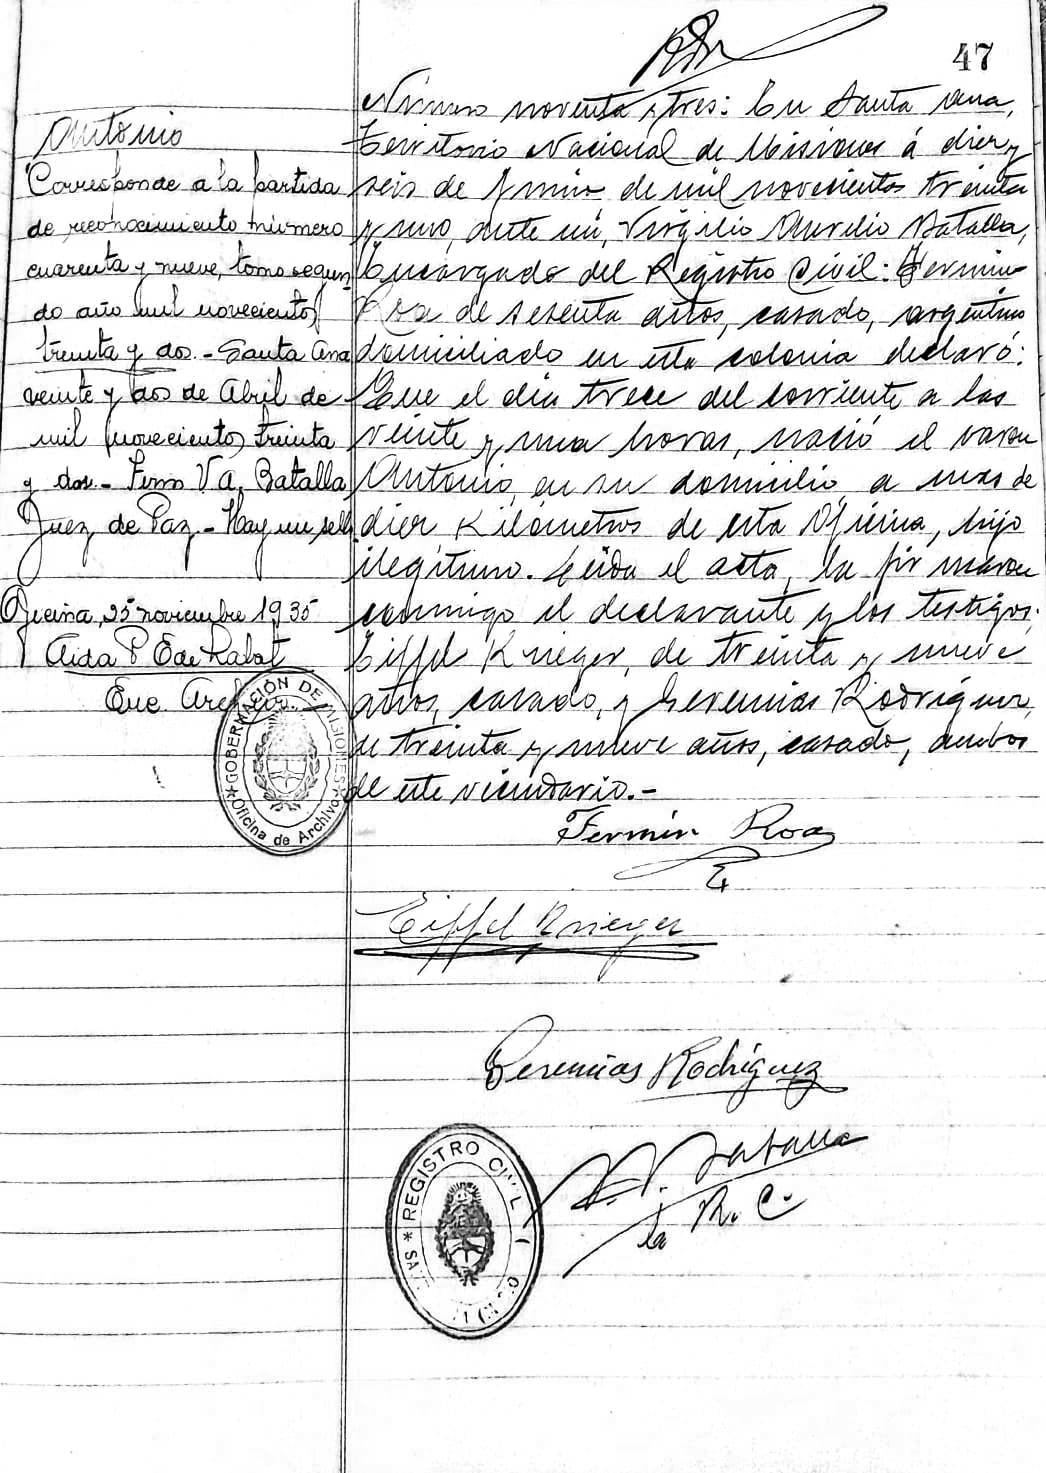 47
Antonio
Corresponde a la partida
de reconocimiento número
cuarenta y nueve, tomo segun-
do año mil novecientos
treinta y dos.- Santa Ana
veinte y dos de Abril de
mil novecientos treinta
y dos.- Firm V A. Batalla
Juez de Paz.- Hay un sello.
Oficina, 25 noviembre 1935
Aida P E de Rabat
Enc Archivo
GOBERNACIÓN DE MISIONES
Oficina de Archivo
Número noventa y tres: En Santa Ana,
Territorio Nacional de Misiones á diez y
seis de Junio de mil novecientos treinta
y uno, ante mí, Virgilio Aurelio Batalla,
Encargado del Registro Civil: Fermin
Roa de sesenta años, casado, argentino
domiciliado en esta colonia declaró:
Que el día trece del corriente a las
veinte y una horas, nació el varon
Antonio, en su domicilio a mas de
diez Kilómetros de esta Oficina, hijo
ilegítimo. Leída el acta, la firmaron
conmigo el declarante y los testigos:
Eiffel Krieger, de treinta y nueve
años, casado, y Geremias Rodriguez,
de treinta y nueve años, casado, ambos
de este vecindario.-
Fermin Roa
Eiffel Krieger
Geremias Rodriguez
V. A. Batalla
R. C.
REGISTRO CIVIL